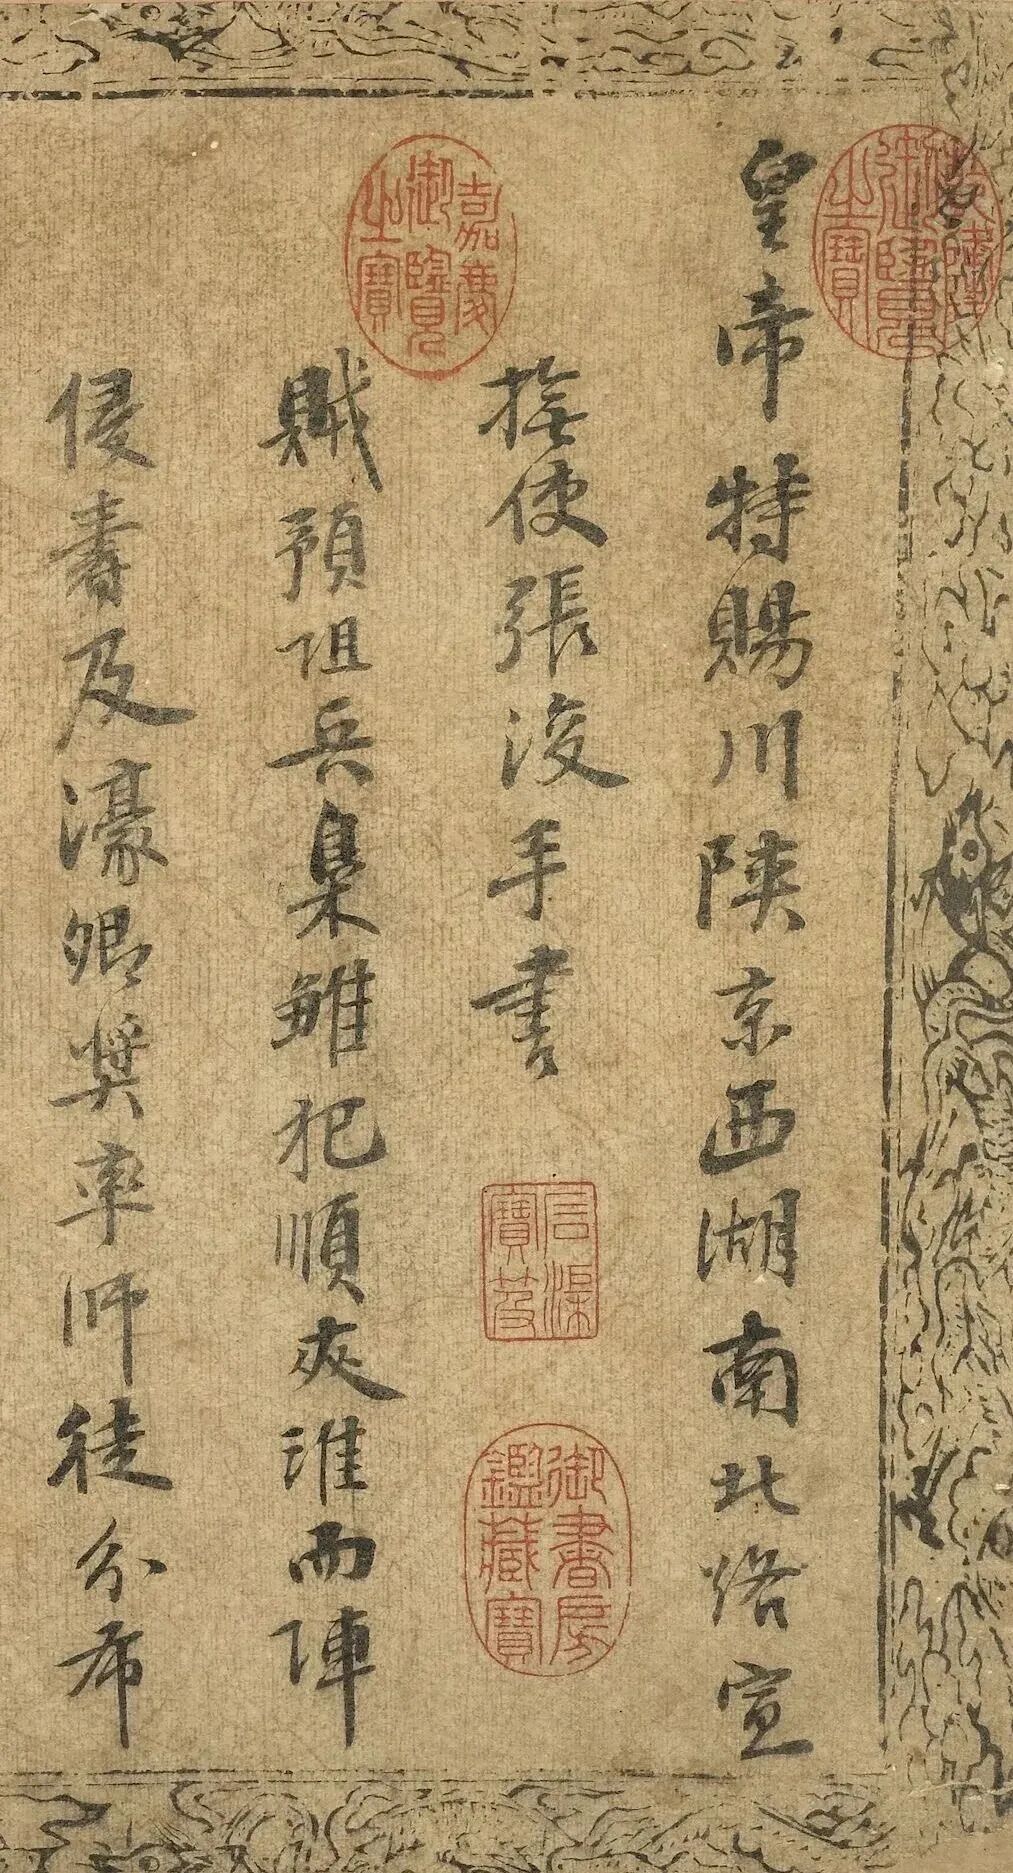 皇帝特賜川陝京西湖南北路宣
撫使張浚手書
賊預阻兵梟雛犯順夾淮而陣
侵壽及濠卿奬率師徒分布
嘉慶御覽之寶
乾隆御覽之寶
石渠寶笈
御書房鑑藏寶